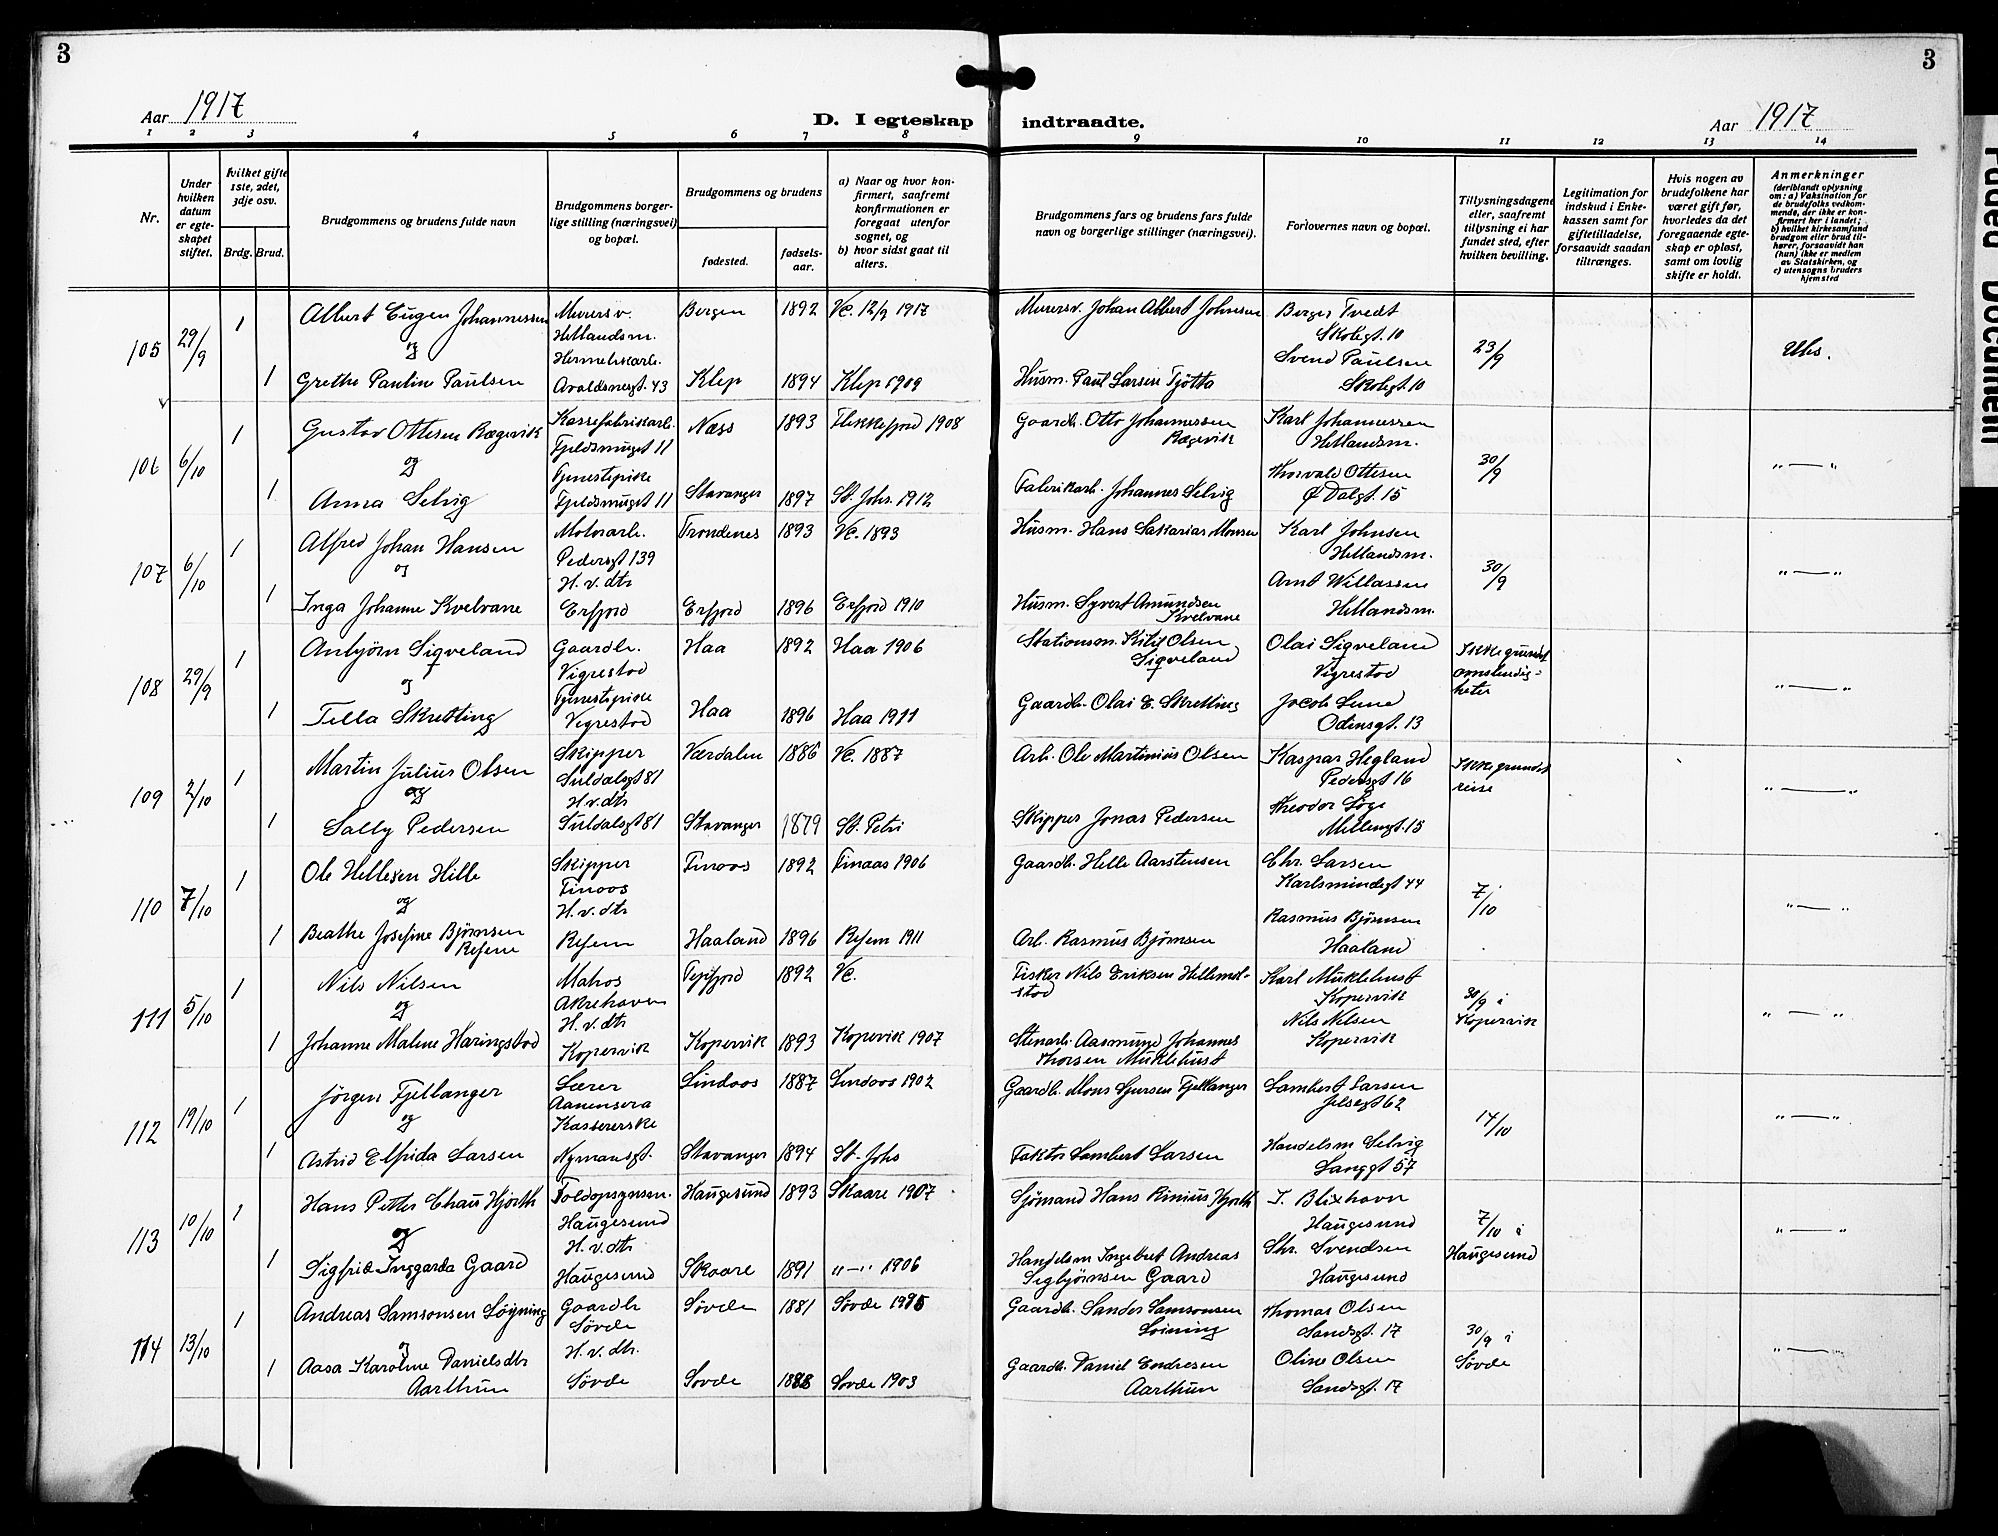 3
3
Aar 1917
D. I egteskap indtraadte.
Aar 1917
1 2 3 4 5 6 7 8 9 10 11 12 13 14
Nr.
Under hvilken datum er egte-skapet stiftet.
Hvilket gifte 1ste, 2det, 3dje osv.
Brdg. Brud.
Brudgommens og brudens fulde navn
Brudgommens borger-lige stilling (næringsvei) og bopæl.
Brudgommens og brudens
fødested.
fødsels-aar.
a) Naar og hvor kon-firmert, saafremt konfirmationen er foregaat utenfor sognet, og
b) hvor sidst gaat til alters.
Brudgommens fars og brudens fars fulde navn og borgerlige stillinger (næringsvei).
Forlovernes navn og bopæl.
Tillysningsdagene eller, saafremt tillysning ei har fundet sted, efter hvilken bevilling.
Legitimation for indskud i Enke-kassen samt for giftetilladelse, forsaavidt saadan tiltrænges.
Hvis nogen av brudefolkene har været gift før, hvorledes da det foregaaende egte-skap er opløst, samt om lovlig skifte er holdt.
Anmerkninger
(deriblandt oplysning om: a) Vaksination for de brudefolks vedkom-mende, der ikke er kon-firmert her i landet; b) hvilket kirkesamfund brudgom eller brud til-hører, forsaavidt han (hun) ikke er medlem av Statskirken, og c) utensogns bruders hjemsted
105 29/9 1 Albert Eugen Johannessen Murersv. Hetlandsm. Bergen 1892 Vc. 12/9 1917 Murersv. Johan Albert Johnsen Berger Tvedt Skolegt. 10 23/9
og
1 Grethe Pauline Paulsen Hermetikarb. Avaldsnesgt. 43 Klep 1894 Klep 1909 Husm. Paul Larsen Tjötta Svend Paulsen Skolegt. 10
106 6/10 1 Gustav Ottesen Rægevik Kassefabrikarb. Fjeldsmuget 11 Næss 1893 Flekkefjord 1908 Gaardb. Otto Johannessen Rægevik Karl Johannessen Hetlandsm. 30/9 „ — „
og
1 Anna Selvig Tjenestepike Fjeldsmuget 11 Stavanger 1897 St. Johs. 1912 Fabrikarb. Johannes Selvig Thorvald Ottesen Ø Dalgt. 15
107 6/10 1 Alfred Johan Hansen Motorarb. Pedersgt 139 Trondenes 1893 Vc. 1893 Husm. Hans Sakarias Monsen Karl Johnsen Hetlandsm. 30/9 „ — „
og
1 Inga Johanne Kvelvane H. v. dtr Erfjord Erfjord 1896 Erfjord 1910 Husm. Syvert Amundsen Kvelvane Arnt Willassen Hetlandsm.
108 29/9 1 Anbjørn Sigveland Gaardbr. Vigrestad Haa 1892 Haa 1906 Stationsm. Kitil Olsen Sigveland Olai Sigveland Vigrestad Ikke grundet omstendig-heter „ — „
og
1 Tella Skretting Tjenestepike Vigrestad Haa 1896 Haa 1911 Gaardb. Olai E. Skretting Jacob Lund Odinsgt. 13
109 2/10 1 Martin Julius Olsen Skipper Suldalsgt 81 Værdalen 1886 Vc. 1887 Arb. Ole Martinius Olsen Kaspar Hegland Pedersgt 16 Ikke grundet reise „ — „
og
1 Sally Pedersen H. v. dtr Suldalsgt 81 Stavanger 1879 St. Petri Skipper Jonas Pedersen Theodor Søge Møllengt. 15
110 7/10 1 Ole Hellesen Hille Skipper Finoos Finoos 1892 Finaas 1906 Gaardb. Helle Aarstensen Chr. Larsen Karlsmindegt 44 7/10 „ — „
og
1 Beathe Josefine Bjørnsen Refsem H. v. dtr Refsem Haaland 1896 Refsem 1911 Arb. Rasmus Bjørnsen Rasmus Bjørnsen Haaland
111 5/10 1 Nils Nilsen Matros Akrehavn 1892 Vc. Fisker Nils Eriksen Karl Muklebust Kopervik 30/9 i Kopervik „ — „
og
1 Johanne Malene Haringstad H. v. dtr Kopervik Kopervik 1893 Kopervik 1907 Stenarb. Aasmund Johannes Thorsen Muklebust Nils Nilsen Kopervik
112 19/10 1 Jörgen Fjellanger Lærer Aanensera Lindaas 1887 Lindaas 1902 Gaardb. Mons Sjursen Fjellanger Lambert Larsen Jelsegt 62 14/10 „ — „
og
1 Astrid Elfrida Larsen Kassererske Nymansgt. Stavanger 1894 St. Johs Faktor Lambert Larsen Handelsm Selvig Langgt 57
113 10/10 1 Hans Petter Chaus Hjorth Toldopsynsm. Haugesund Haugesund 1893 Skaare 1907 Sjømand Hans Rinius Hjorth I. Blixhavn Haugesund 7/10 i Haugesund „ — „
og
1 Sigfrid Inggarda Gaard H. v. dtr Haugesund Skaare 1891 „ — „ 1906 Handelsm Ingebret Andreas Sigbjørnsen Gaard Chr. Svendsen Haugesund
114 13/10 1 Andreas Samsonsen Løyning Gaardb Søvde Søvde 1881 Søvde Gaardb. Sander Samsonsen Loining Thomas Olsen Sandsgt. 17 30/9 i Søvde „ — „
og
1 Aasa Karoline Danielsdtr Aarthun H. v. dtr. Søvde Sovde 1888 Sovde 1903 Gaardb. Daniel Endresen Aarthun Oline Olsen Sandsgt. 17